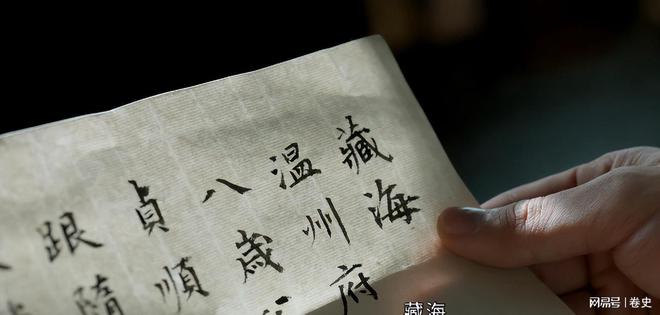 藏海
温州府
八歲
貞順
跟隨
藏海
网易号 | 卷史